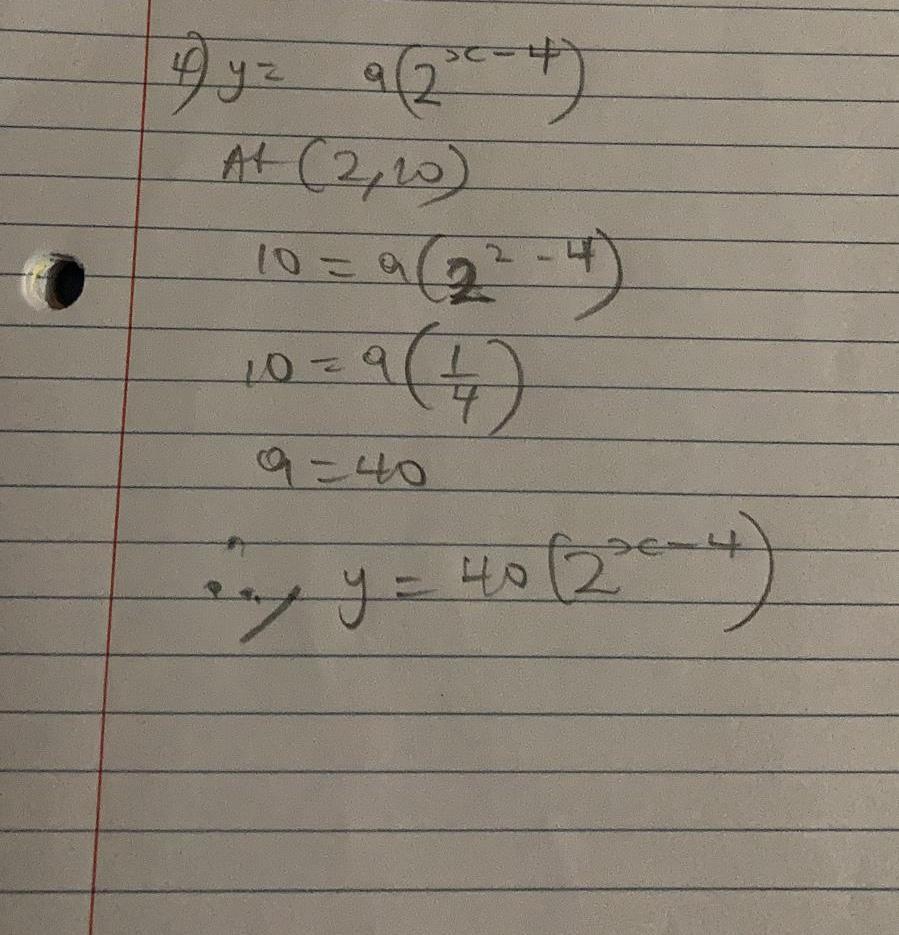 4) y = a(2^{x-4})
At (2,10)
10 = a(2^{2-4})
10 = a(1/4)
a = 40
∴, y = 40(2^{x-4})